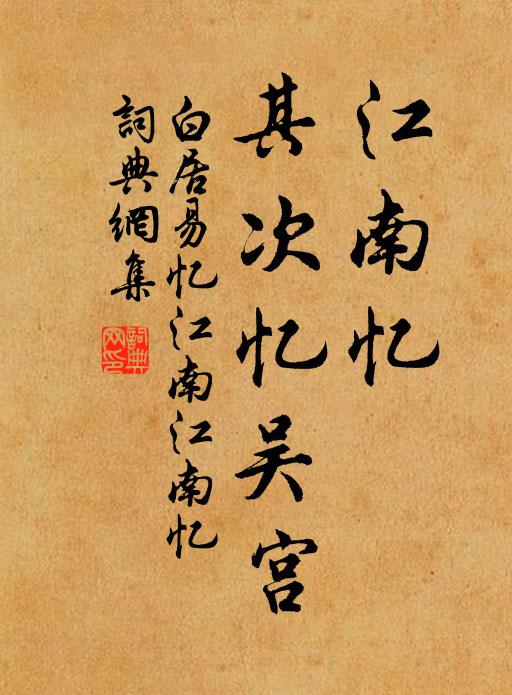 江南忆
其次忆吴宫
白居易忆江南江南忆
詞典網集
詞典
网印